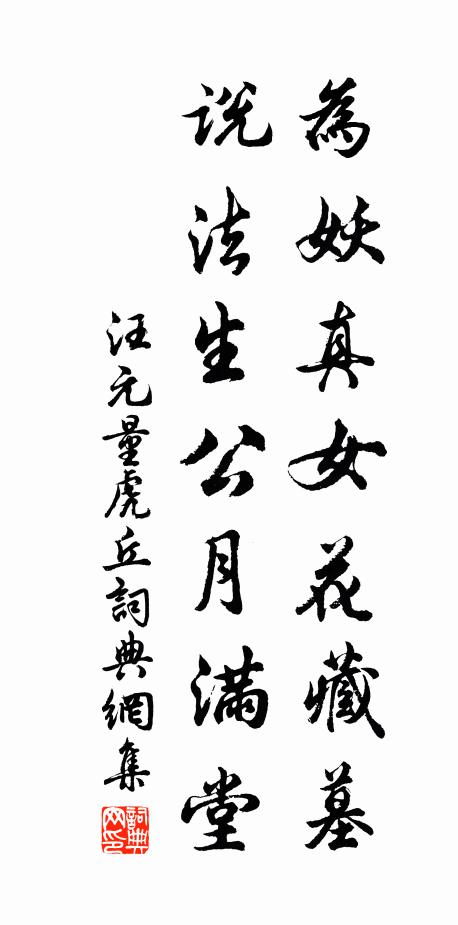 為妖真女花藏墓
說法生公月滿堂
汪元量虎丘詞典網集
詞典网印